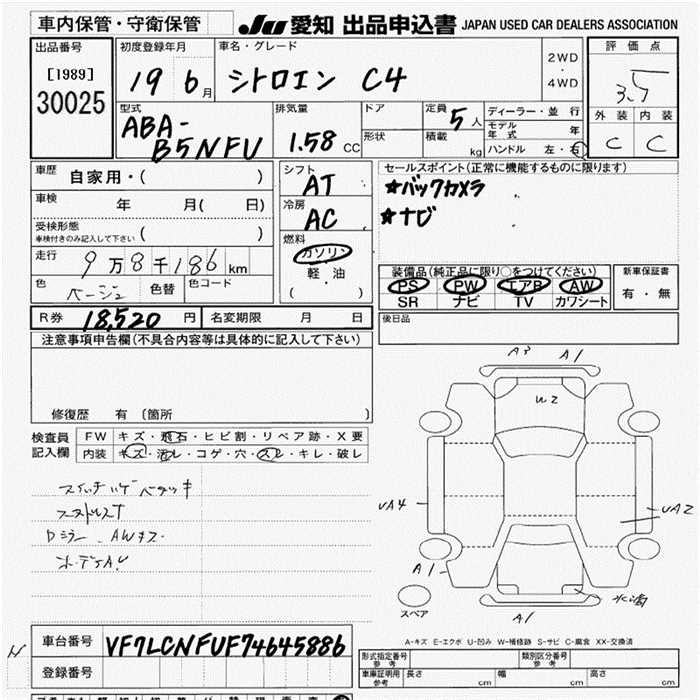 車内保管・守衛保管
JU 愛知 出品申込書 JAPAN USED CAR DEALERS ASSOCIATION
出品番号
[1989]
30025
初度登録年月
19 6月
車名・グレード
シトロエン C4
2WD
・
4WD
評価点
3.5
外装 内装
C C
型式
ABA-
B5NFU
排気量
1.58 CC
ドア
形状
定員 5人
積載 kg
ディーラー・並行
モデル年式 年
ハンドル 左・右
車歴
自家用・( )
車検
年 月( 日)
受検形態
車検付きのみ記入して下さい ( )
走行
9万8千186km
色
ベージュ
色替
色コード
シフト
AT
冷房
AC
燃料
ガソリン
軽・油
( )
セールスポイント(正常に機能するものに限ります)
★バックカメラ
★ナビ
装備品(純正品に限り○をつけてください)
PS PW エアB AW
SR ナビ TV カワシート
新車保証書
有・無
R券 18,520 円
名変期限 月 日
後日品
注意事項申告欄(不具合内容等は具体的に記入して下さい)
修復歴 有 〔箇所 〕
検査員
記入欄
FW キズ・飛石・ヒビ割・リペア跡・X要
内装 キズ・汚レ・コゲ・穴・スレ・キレ・破レ
A3 A1
W2
UA4
UA2
A1
スペア
A1
A-キズ E-エクボ U-凹み W-補修跡 S-サビ C-腐食 XX-交換済
車台番号 VF7LCNFUF74645886
登録番号
形式指定番号
参考
類別区分番号
参考
車庫証明用
参考
長さ cm 幅 cm 高さ cm